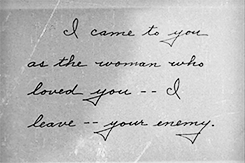 I came to you
as the woman who
loved you -- I
leave -- your enemy.